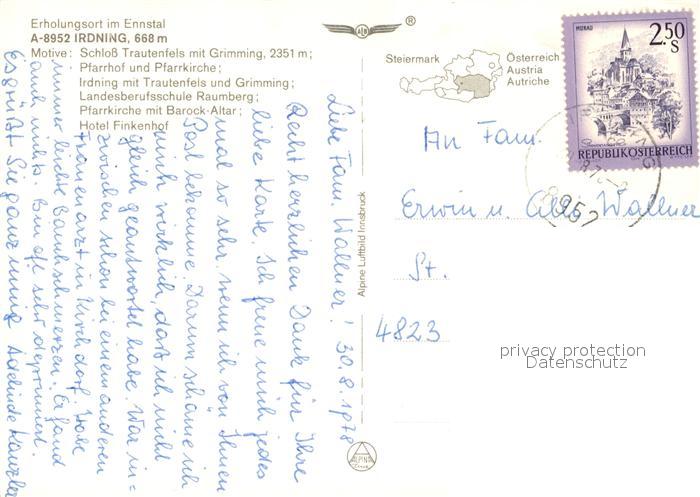 Erholungsort im Ennstal
A-8952 IRDNING, 668 m
Motive: Schloß Trautenfels mit Grimming, 2351 m;
Pfarrhof und Pfarrkirche;
Irdning mit Trautenfels und Grimming;
Landesberufsschule Raumberg;
Pfarrkirche mit Barock-Altar;
Hotel Finkenhof
®
Steiermark
Österreich
Austria
Autriche
MURAU
2.50
S
REPUBLIK ÖSTERREICH
8952
Alpine Luftbild Innsbruck
ALPINE
An Fam.
Erwin u. Wallner
St.
4823
privacy protection
Datenschutz
Liebe Fam. Wallner! 30.8.1978
Recht herzlichen Dank für Ihre
liebe Karte. Ich freue mich jedes
mal so sehr, wenn ich von Ihnen
Post bekomme. Darum schäme ich
mich wirklich, daß ich nicht
gleich geantwortet habe. War in=
zwischen schon bei einem anderen
Frauenarzt in Kirchdorf. Habe
immer leichte Bauchschmerzen. Er fand
auch nichts. Bin oft sehr deprimiert.
Es grüßt Sie ganz innig Adelinde Kanzler